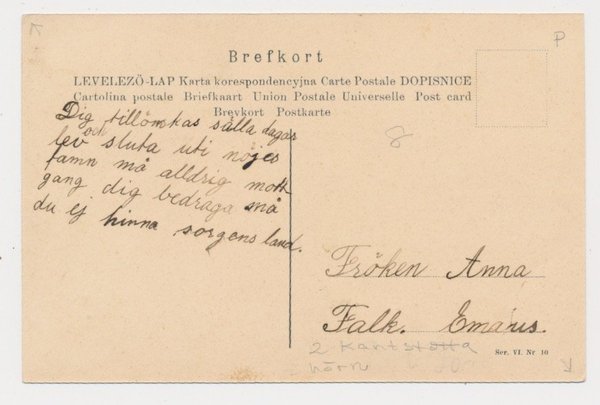 Brefkort
LEVELEZŐ-LAP Karta korespondencyjna Carte Postale DOPISNICE
Cartolina postale Briefkaart Union Postale Universelle Post card
Brevkort Postkarte
P
8
Dig tillönskas sälla dagar
lev och sluta uti nöjes
famn må alldrig mott
gang dig bedraga må
du ej hinna sorgens land.
Fröken Anna
Falk. Emaus.
2 kantstötta
hörn
Ser. VI. Nr 10